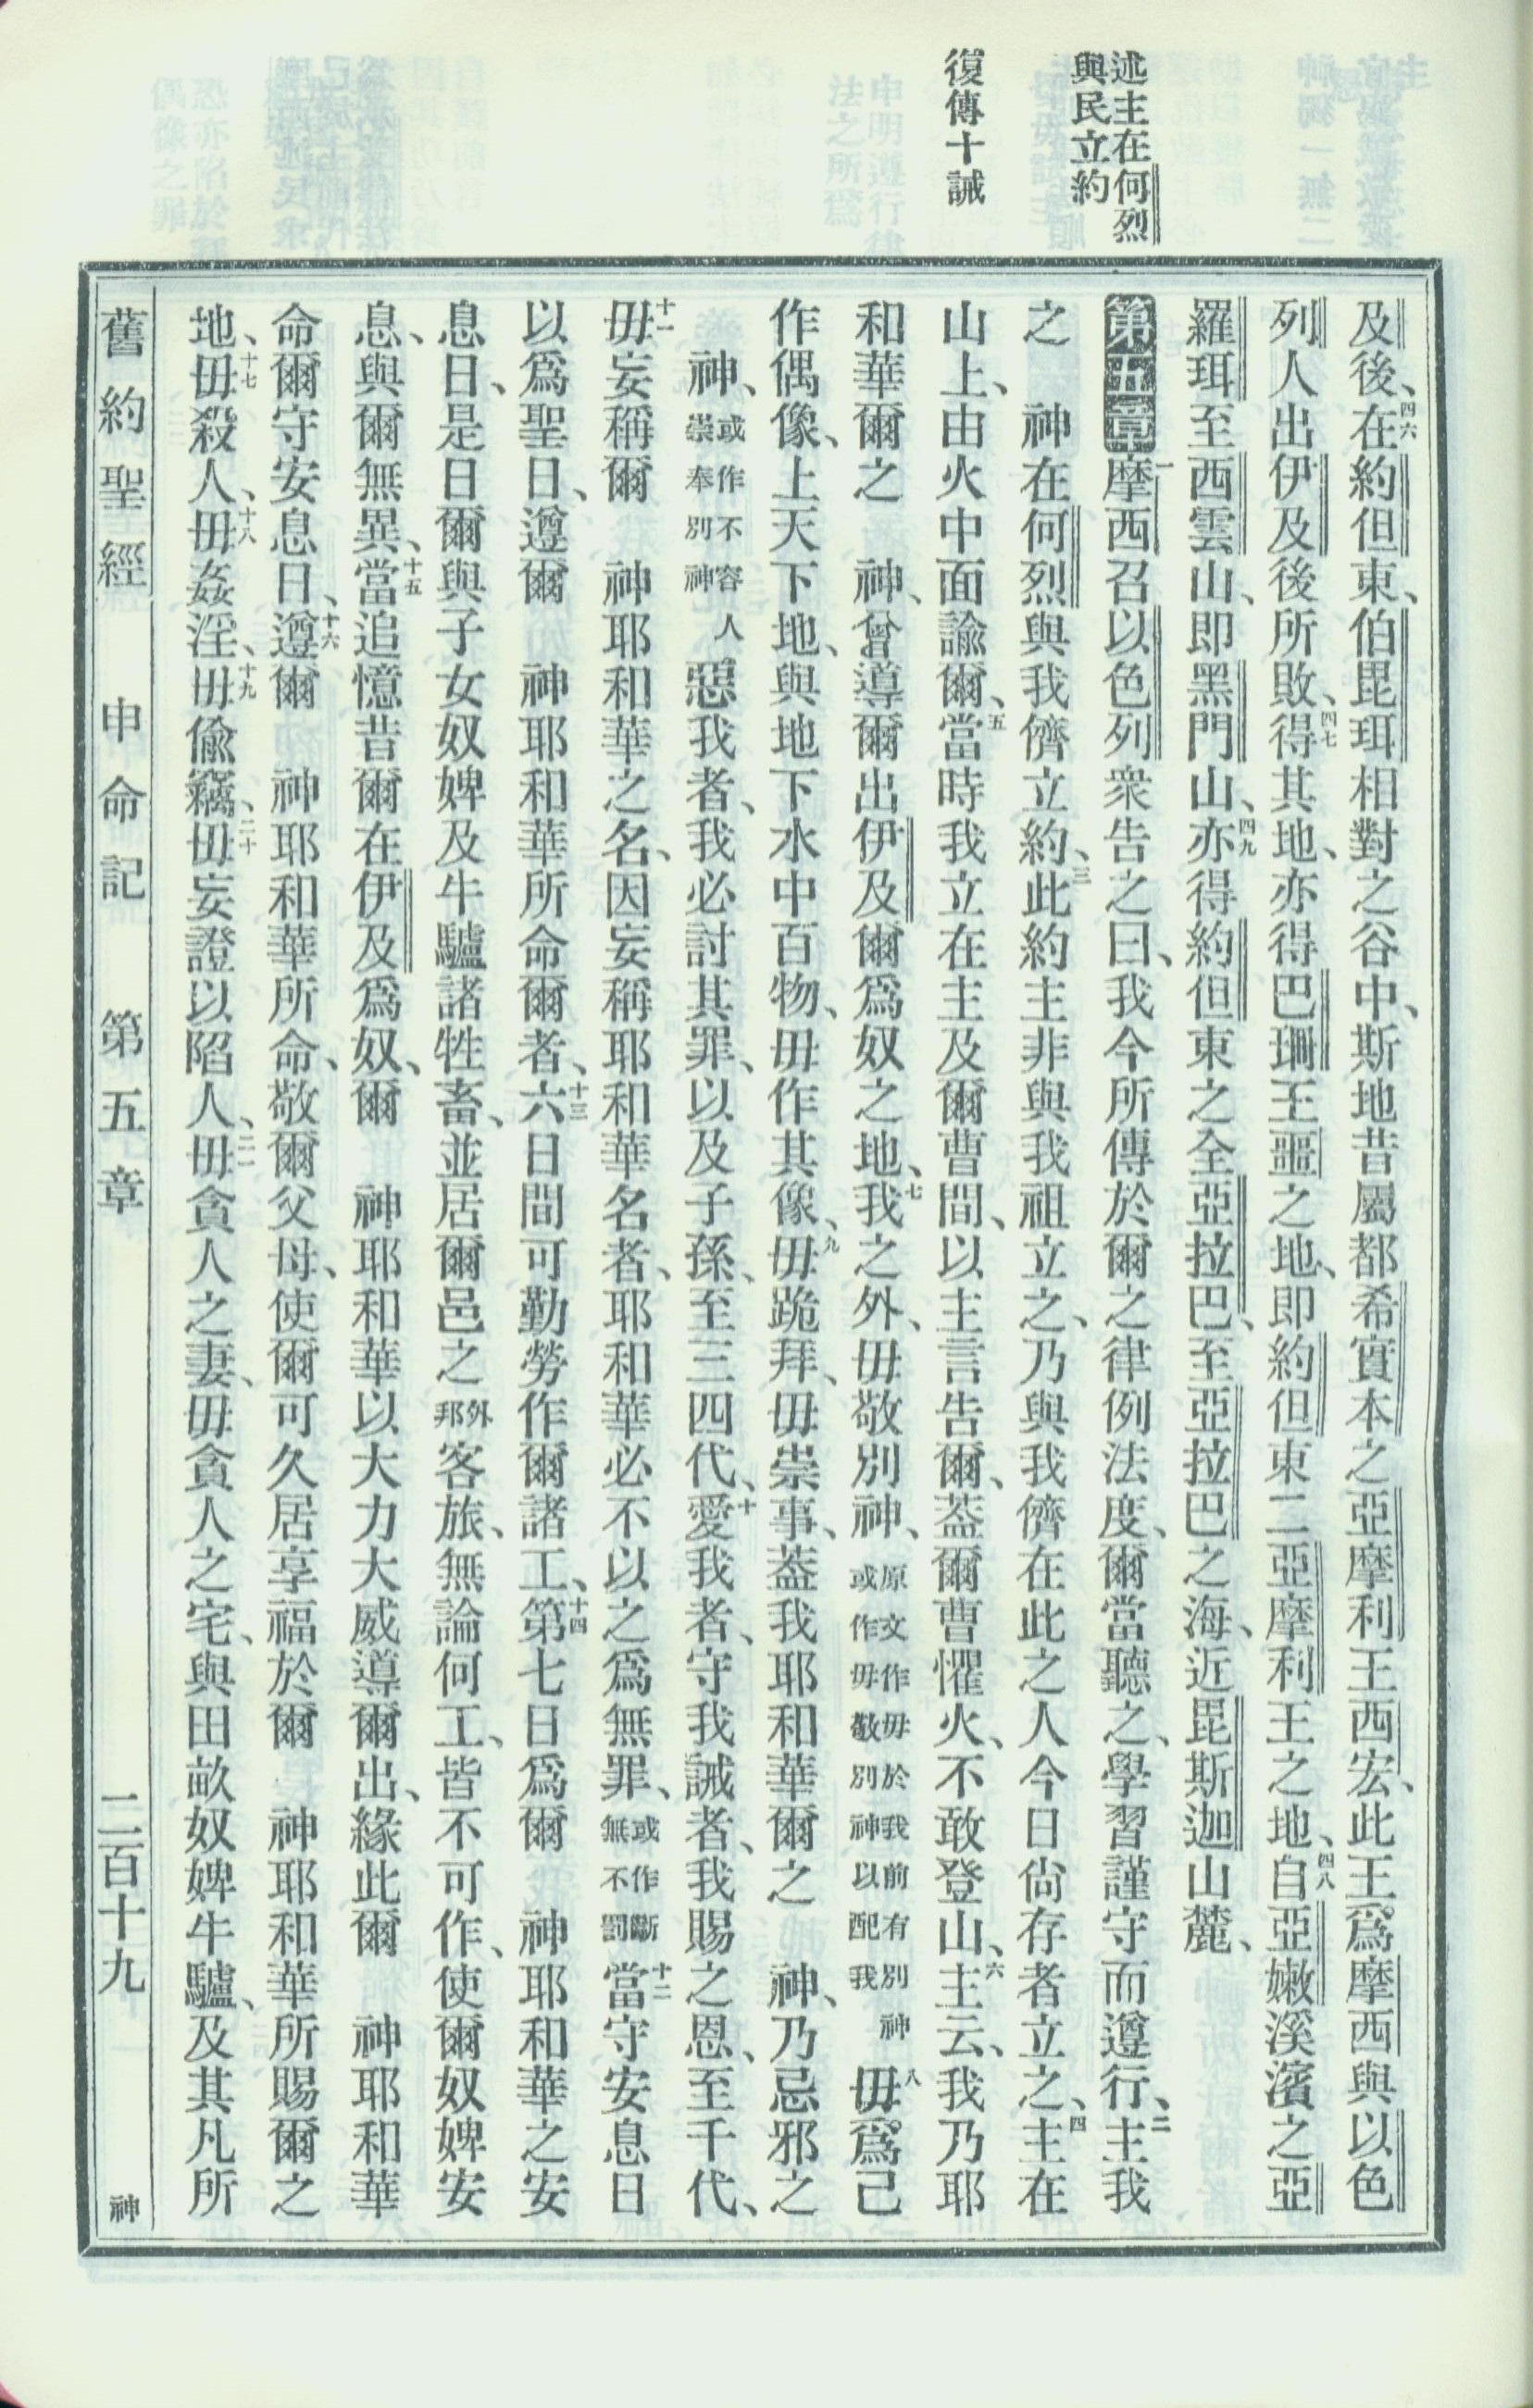 述主在何烈
與民立約
復傳十誡
及後、四六在約但東、伯毘珥相對之谷中、斯地昔屬都希實本之亞摩利王西宏、此王爲摩西與以色
列人出伊及後所敗、四七得其地、亦得巴珊王噩之地、即約但東二亞摩利王之地、四八自亞嫩溪濱之亞
羅珥至西雲山、即黑門山、四九亦得約但東之全亞拉巴、至亞拉巴之海、近毘斯迦山麓、
第五章一摩西召以色列衆告之曰、我今所傳於爾之律例法度、爾當聽之、學習謹守而遵行、二主我
之　神在何烈與我儕立約、三此約主非與我祖立之、乃與我儕在此之人今日尙存者立之、四主在
山上、由火中面諭爾、五當時我立在主及爾曹間、以主言告爾、葢爾曹懼火、不敢登山、六主云、我乃耶
和華爾之　神、曾導爾出伊及爾爲奴之地、七我之外、毋敬別神、原文作毋於我前有別神或作毋敬別神以配我八毋爲己
作偶像、上天下地、與地下水中百物、毋作其像、九毋跪拜、毋崇事、葢我耶和華爾之　神、乃忌邪之
神、或作不容人崇奉別神惡我者、我必討其罪、以及子孫、至三四代、十愛我者、守我誡者、我賜之恩、至千代、
十一毋妄稱爾　神耶和華之名、因妄稱耶和華名者、耶和華必不以之爲無罪、或作斷無不罰十二當守安息日
以爲聖日、遵爾　神耶和華所命爾者、十三六日間可勤勞作爾諸工、十四第七日爲爾　神耶和華之安
息日、是日爾與子女奴婢及牛驢諸牲畜、並居爾邑之外邦客旅、無論何工、皆不可作、使爾奴婢安
息、與爾無異、十五當追憶昔爾在伊及爲奴、爾　神耶和華以大力大威導爾出、緣此爾　神耶和華
命爾守安息日、十六遵爾　神耶和華所命、敬爾父母、使爾可久居享福於爾　神耶和華所賜爾之
地、十七毋殺人、十八毋姦淫、十九毋偸竊、二十毋妄證以陷人、二一毋貪人之妻、毋貪人之宅、與田畝奴婢牛驢、及其凡所
舊約聖經　申命記　第五章　二百十九　神